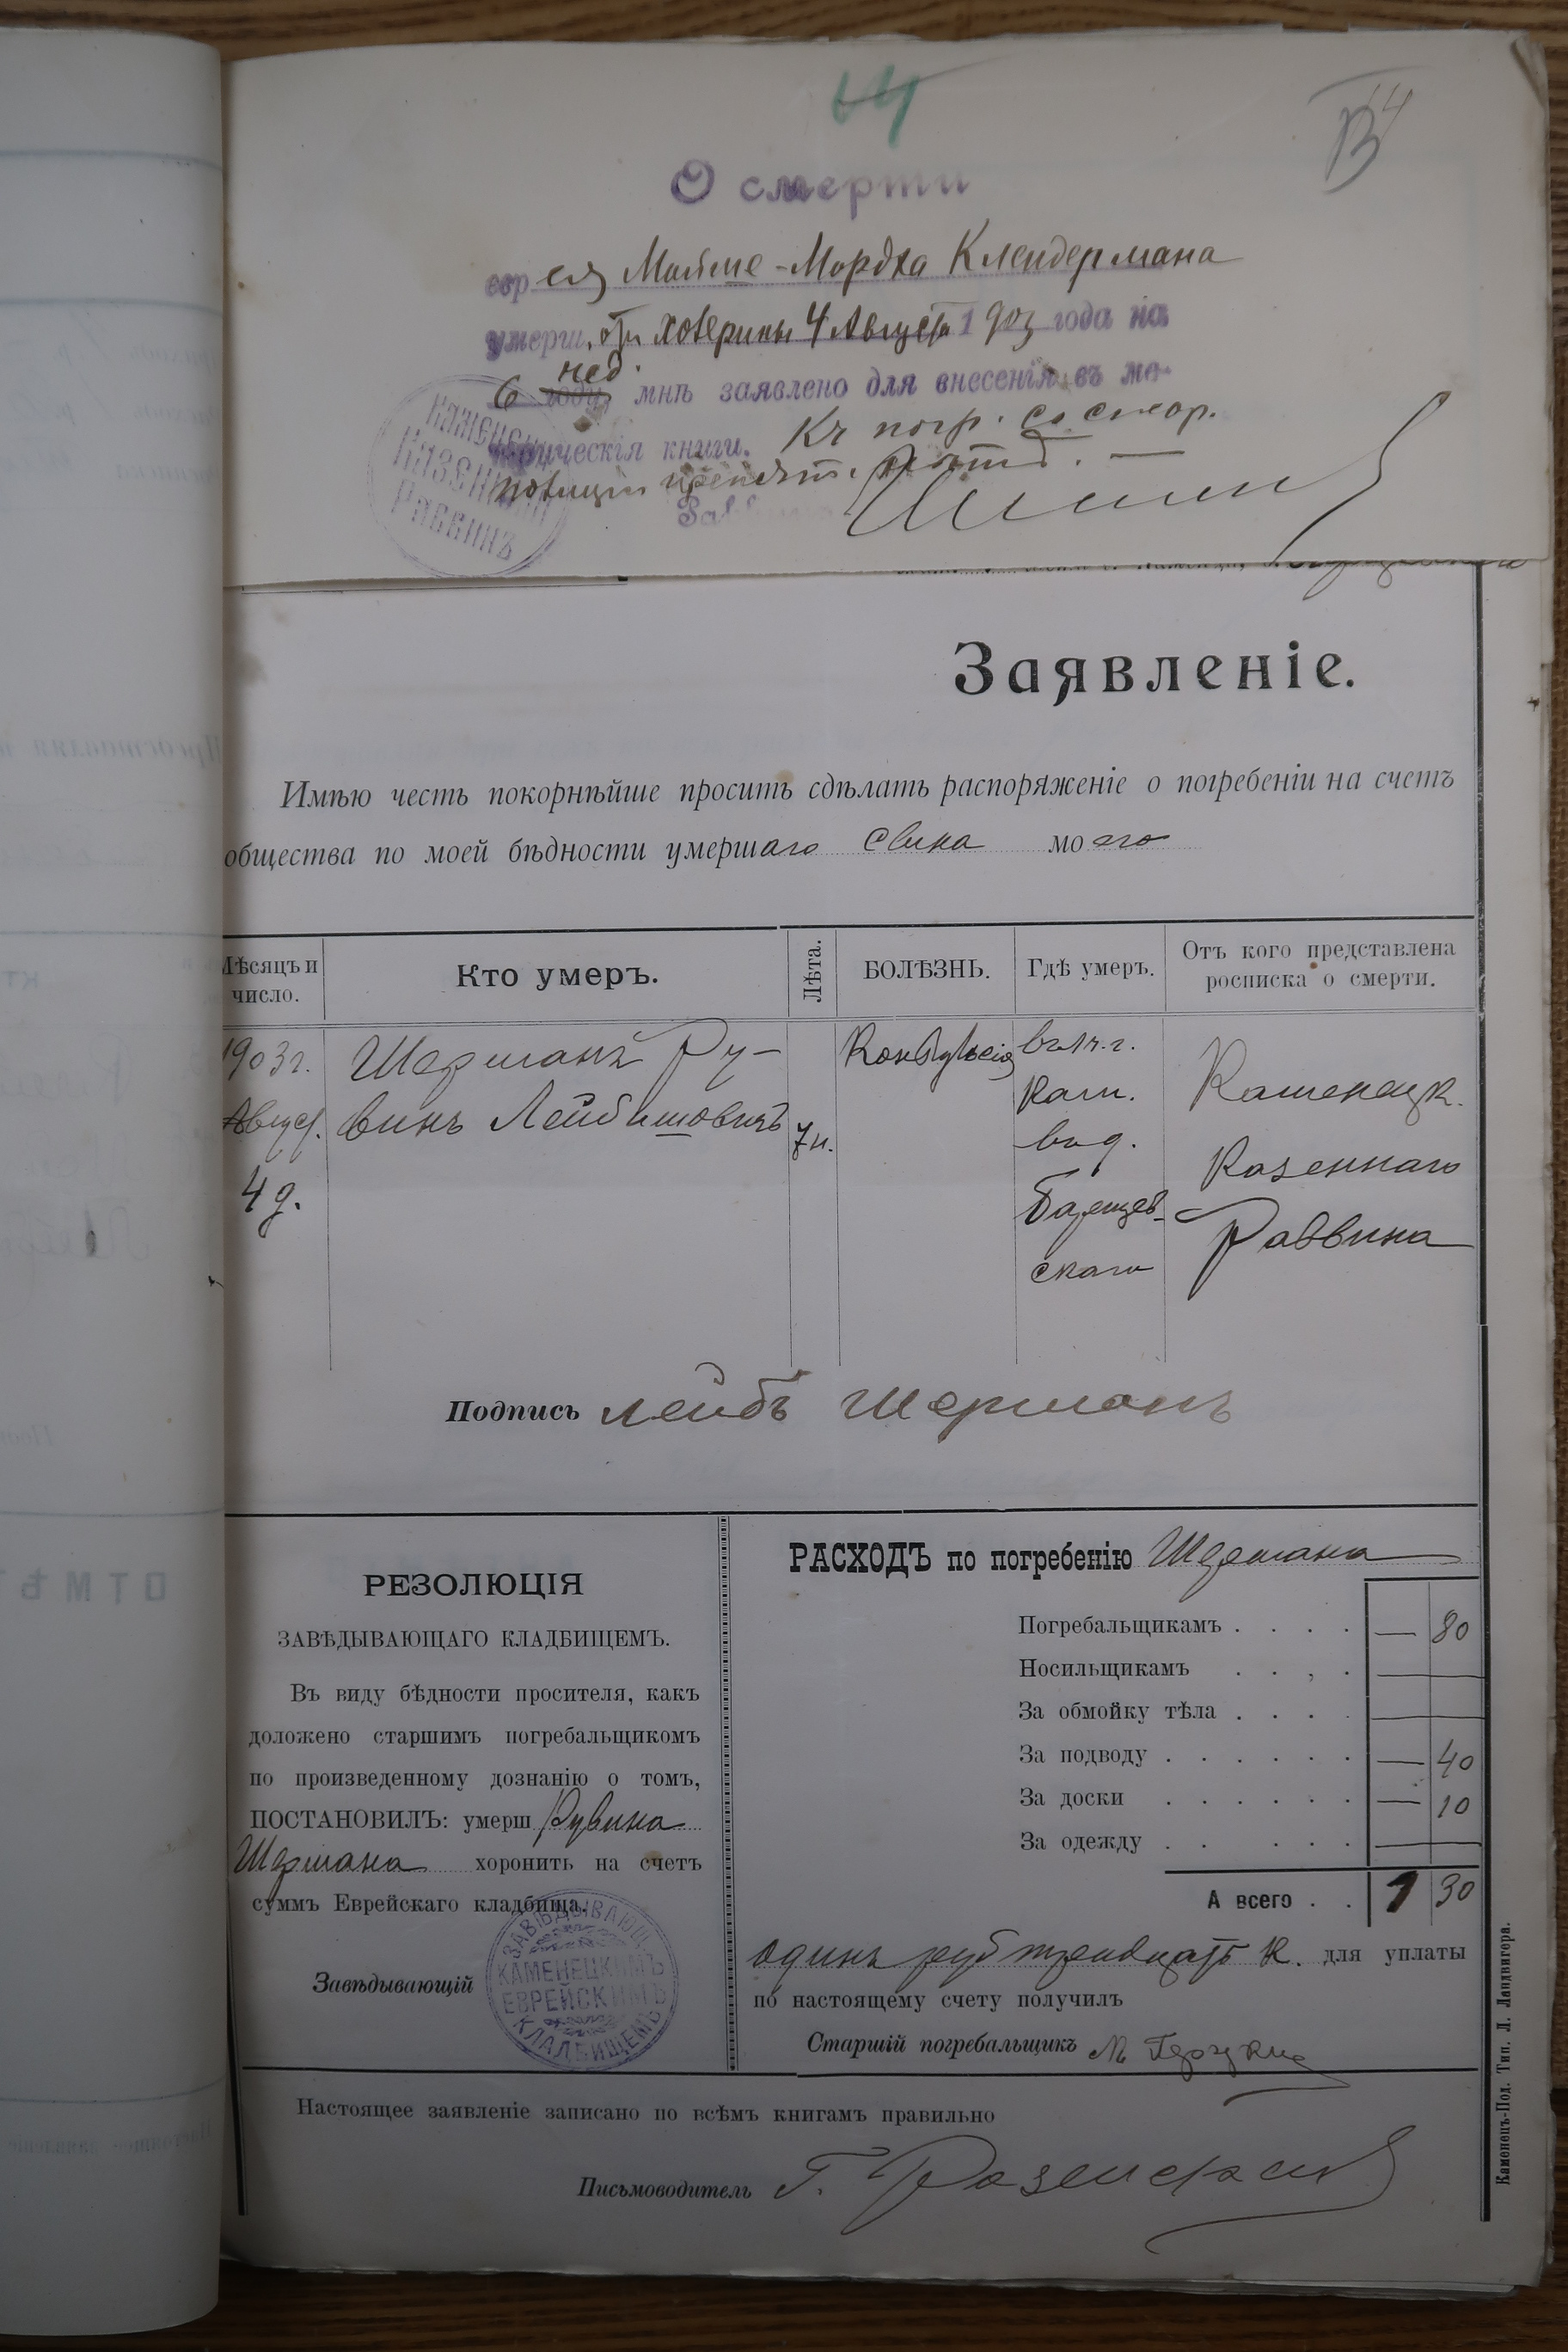 64
О смерти
еврея Мойше-Мордха Клейдермана
умерш. от холерины 4 Августа 1903 года на
6 нед. году, мнѣ заявлено для внесенія въ ме-
трическія книги. Къ погр. со стор.
полиціи препят. нѣтъ. —
КАМЕНЕЦ. КАЗЕННЫЙ РАВВИНЪ
Заявленіе.
Имѣю честь покорнѣйше просить сдѣлать распоряженіе о погребеніи на счетъ
общества по моей бѣдности умершаго сына моего
Мѣсяцъ и число. Кто умеръ. Лѣта. БОЛѢЗНЬ. Гдѣ умеръ. Отъ кого представлена росписка о смерти.
1903 г. Шерманъ Ру- Конвульсія въ п. г.
Август. винъ Лейбишовичъ 7 н. Кам. Каменецк.
4 д. въ д. Казеннаго
скаго Раввина
Подпись Лейбъ Шерманъ
РЕЗОЛЮЦІЯ
ЗАВѢДЫВАЮЩАГО КЛАДБИЩЕМЪ.
Въ виду бѣдности просителя, какъ
доложено старшимъ погребальщикомъ
по произведенному дознанію о томъ,
ПОСТАНОВИЛЪ: умерш Рувина
Шермана хоронить на счетъ
суммъ Еврейскаго кладбища.
Завѣдывающій
ЗАВѢДЫВАЮЩ. КАМЕНЕЦКИМЪ ЕВРЕЙСКИМЪ КЛАДБИЩЕМЪ
РАСХОДЪ по погребенію Шермана
Погребальщикамъ . . . . — 80
Носильщикамъ . . , . —
За обмойку тѣла . . . . —
За подводу . . . . . . — 40
За доски . . . . . . — 10
За одежду . . . . . —
А всего . . 1 30
одинъ руб тридцать к. для уплаты
по настоящему счету получилъ
Старшій погребальщикъ М
Настоящее заявленіе записано по всѣмъ книгамъ правильно
Письмоводитель Г.
Каменецъ-Под. Тип. Л. Ландвигера.